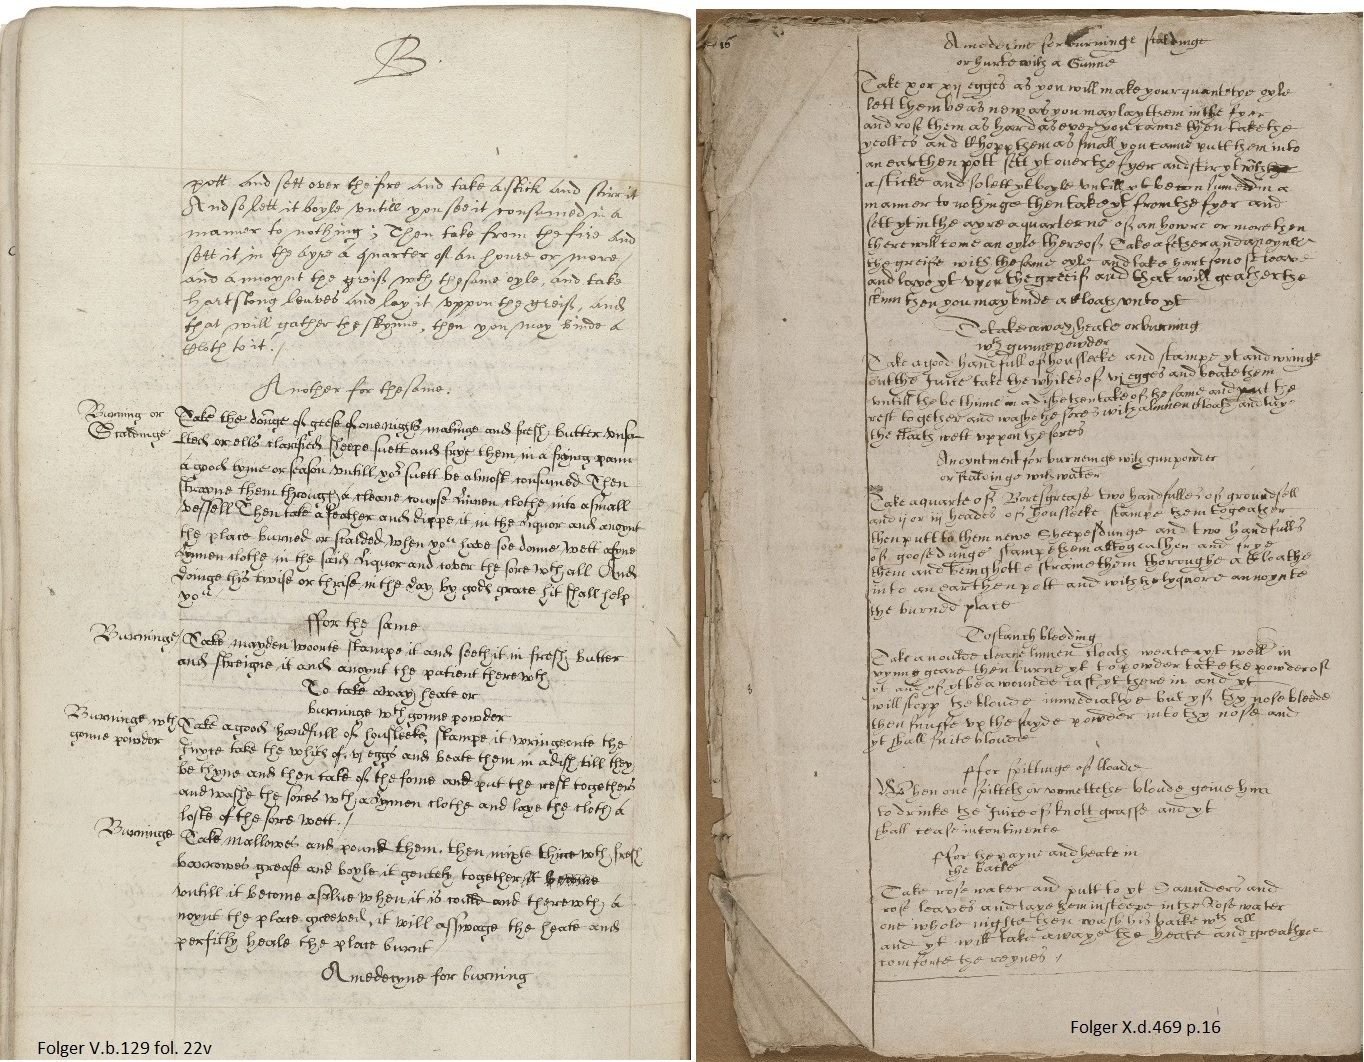 B
pott and sett over the fire and take a stick and stirr it
And so lett it boyle untill you see it consumed in a
manner to nothing; Then take from the fire and
sett it in the ayre a quarter of an houre or more
and anoynt the greiff wth the same oyle, and take
hartstong leaves and lay it uppon the greiff, and
that will gather the skynne, then you may binde a
Cloth to it ./
Another for the same.
Burning or
Scaldinge
Take the donge of geese of one nights makinge and fresh butter
or ells clarified sheepe suett and frye them in a frying pann
a good tyme or season untill yor suett be almost consumed Then
strayne them through a cleane course lynnen clothe into a small
vessell Then take a feather and dippe it in the liquor and anoynt
the place burned or scalded, when you have soe donne wett a fyne
lynnen clothe in the said liquor and cover the sore wth all And
doinge this twise or thrise in the day by gods grace hit shall help
you
ffor the same
Burninge
Take mayden woorte stampe it and seeth it in fresh butter
and streigne it and anoynt the patient therewth
To take away heate or
burninge wth gonne powder
Burninge wth
gonne powder
Take a good handfull of housleeke, stampe it wringe oute the
Juyce take the whits of vj eggs and beate them in a dish till they
be thyne and then take of the fome and put the rest togethers
and washe the sores wth a lynnen clothe and laye the cloth a
lofte of the sore wett ./
Burninge
Take Mallowes and pound them, then mixte wth fresh
barrowes grease and boyle it gently together
untill it become a salve when it is could and therewth a
noynt the place greeved, it will asswage the heate and
perfitly heale the place burnt
A medecyne for burning
Folger V.b.129 fol. 22v
16
A medecine for burninge skaldinge
or hurte with a Gunne
Take x or xij egges as you will make your quantetye oyle
lett them be as new as you may lay them in the fyer
and rost them as hard as ever you canne then take the
yoelkes and Choppe them as small you canne putt them into
an earthen pott sett yt over the fyer and stir yt with
a sticke and so lett yt boyle untill yt be consumed in a
manner to nothinge then take yt from the fyer and
sett yt in the ayre a quarterne of an howre or more then
there will come an oyle thereof Take a fether and anoynte
the greife with the same oyle and take hartstong leave
and laye yt upon the greeif and that will geather the
skinn then you may binde a kloath unto yt
To take away heate or burning
wth gunnepowder
Take a good handfull of housleeke and stampe yt and wringe
out the Juice take the whites of vj egges and beate them
untill the be thinne in a dishe then take of the fome and putt the
rest together and washe the sores with a linnen kloath and laye
the cloath wett uppon the sores
An oyntment for burneinge with gunpowder
or skaldinge with water
Take a quarte of Bores grease two handfulles of groundsell
and ij or iij heades of houssleeke stampe them togeather
then putt to them newe Sheepes dunge and two handfulls
of goose dunge stampe them altogeather and frye
them and being hotte straine them thoroughe a kleathe
into an earthen pott and with the lyquore annoynte
the burned place
To stanch bleeding
Take an oulde cleane linnen cloath
then burne yt to powder take the powder of
yt and yf yt be a wounde cast yt there in and yt
will stopp the bloude immediatlye but yf thy nose bleede
then snuffe up the sayde powder into thy nose and
yt shall
ffor spittinge of bloude
When one spitteth or vomettethe bloude geive him
to drinke the Juice of knott grasse and yt
shall cease incontinente
ffor the payne and heate in
the backe
Take rose water and putt to yt Saunders and
rose leaves and laye them in steepe in the Rose water
one whole nighte then wash his backe wth all
and yt will take awaye the heate and greatlye
comforte the reynes /
Folger X.d.469 p.16